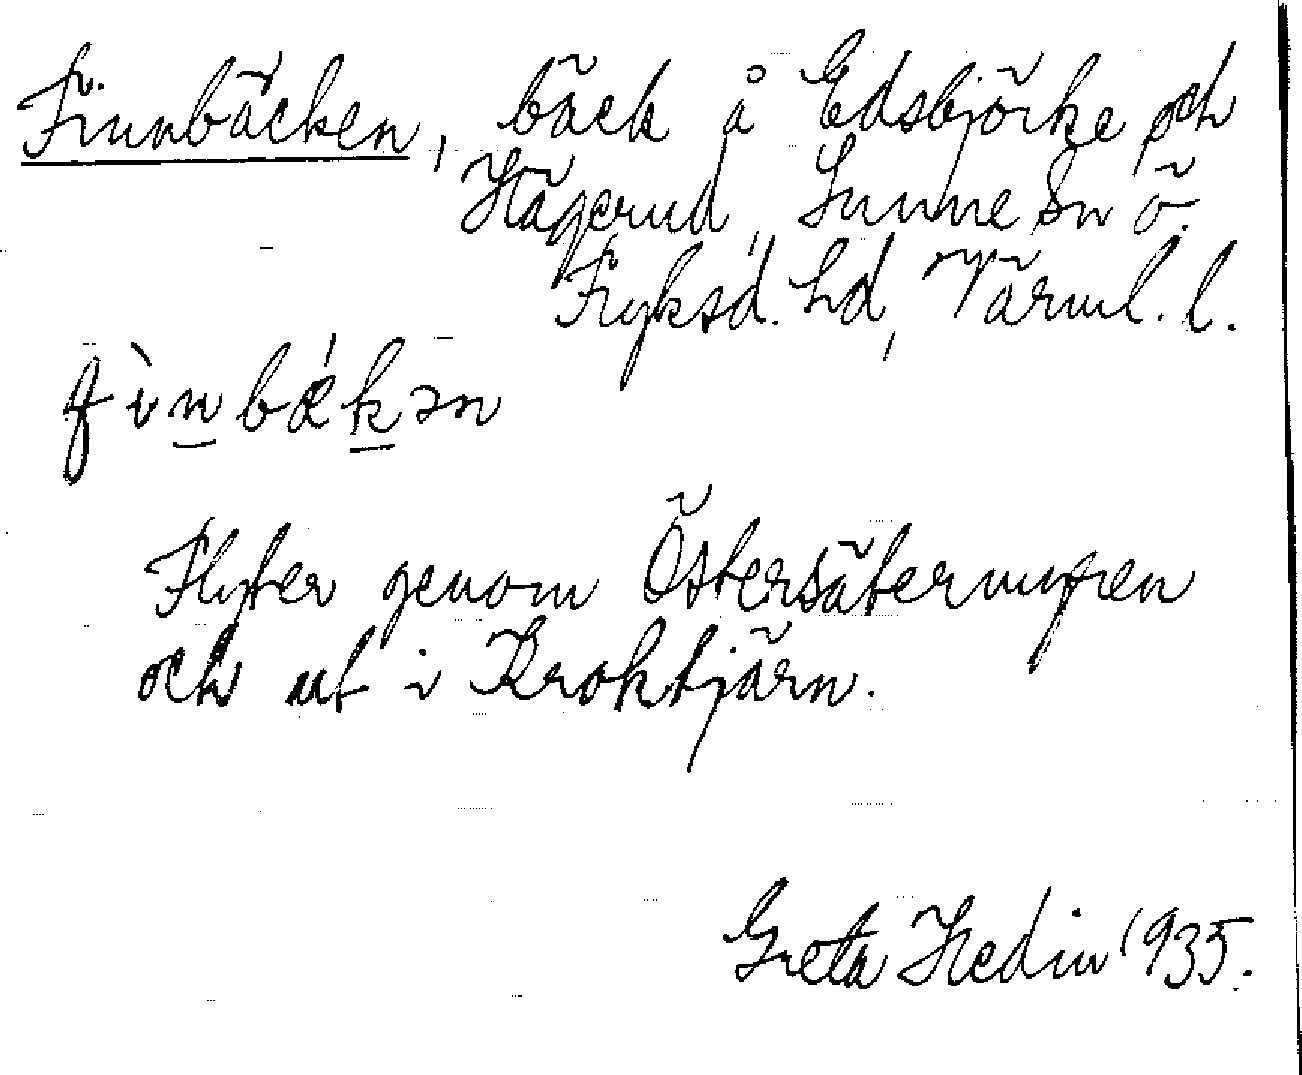 Finnbäcken, bäck å Edsbjörke och
Hägerud, Sunne sn Ö.
Fryksd. hd, Värml. l.
fìnbǽkən
Flyter genom Östersätermyren
och ut i Kroktjärn.
Greta Hedin 1935.